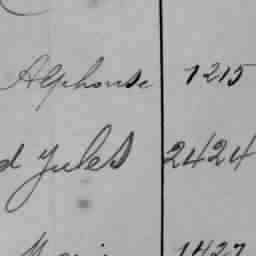 Alphonse 1215
d Jules 2424
1427